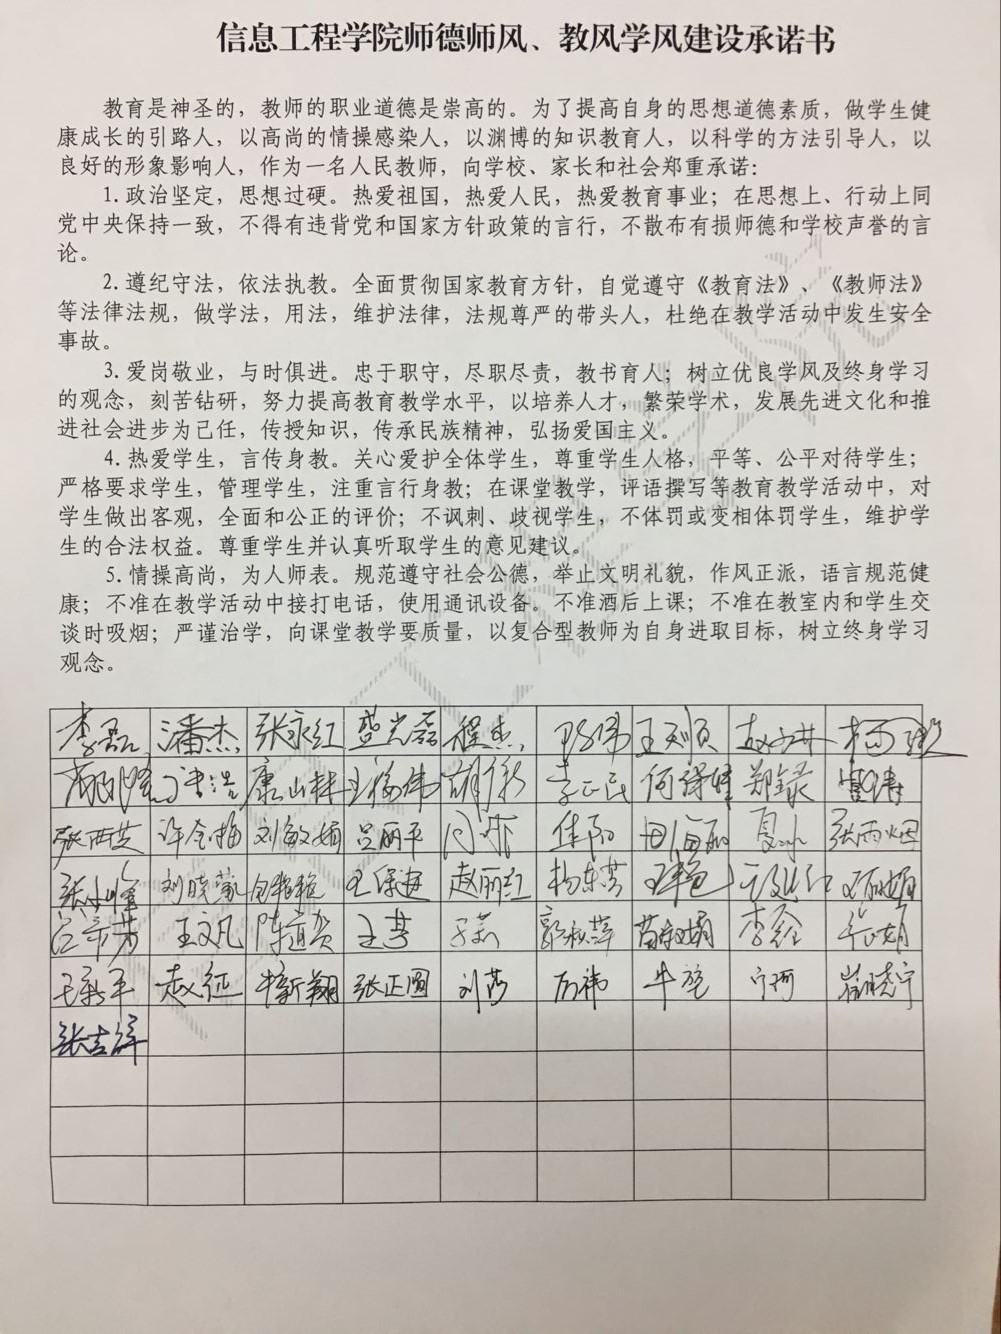 信息工程学院师德师风、教风学风建设承诺书
教育是神圣的，教师的职业道德是崇高的。为了提高自身的思想道德素质，做学生健
康成长的引路人，以高尚的情操感染人，以渊博的知识教育人，以科学的方法引导人，以
良好的形象影响人，作为一名人民教师，向学校、家长和社会郑重承诺：
1.政治坚定，思想过硬。热爱祖国，热爱人民，热爱教育事业；在思想上、行动上同
党中央保持一致，不得有违背党和国家方针政策的言行，不散布有损师德和学校声誉的言
论。
2.遵纪守法，依法执教。全面贯彻国家教育方针，自觉遵守《教育法》、《教师法》
等法律法规，做学法，用法，维护法律，法规尊严的带头人，杜绝在教学活动中发生安全
事故。
3.爱岗敬业，与时俱进。忠于职守，尽职尽责，教书育人；树立优良学风及终身学习
的观念，刻苦钻研，努力提高教育教学水平，以培养人才，繁荣学术，发展先进文化和推
进社会进步为己任，传授知识，传承民族精神，弘扬爱国主义。
4.热爱学生，言传身教。关心爱护全体学生，尊重学生人格，平等、公平对待学生；
严格要求学生，管理学生，注重言行身教；在课堂教学，评语撰写等教育教学活动中，对
学生做出客观，全面和公正的评价；不讽刺、歧视学生，不体罚或变相体罚学生，维护学
生的合法权益。尊重学生并认真听取学生的意见建议。
5.情操高尚，为人师表。规范遵守社会公德，举止文明礼貌，作风正派，语言规范健
康；不准在教学活动中接打电话，使用通讯设备。不准酒后上课；不准在教室内和学生交
谈时吸烟；严谨治学，向课堂教学要质量，以复合型教师为自身进取目标，树立终身学习
观念。
李磊 潘杰 张永红 盛光磊 程杰 王顺
康山林 李正民 郑录
张西芝 许金梅 刘敏娟 吕丽平 佳阳 张雨烟
刘晓 王保进 赵丽红 杨东芳 王艳
王文凡 陈道贺 于莉 郭秋萍
王新平 赵征 牛新翔 张正圆 刘莎 厉祎 宁珂 崔晓宁
张吉祥